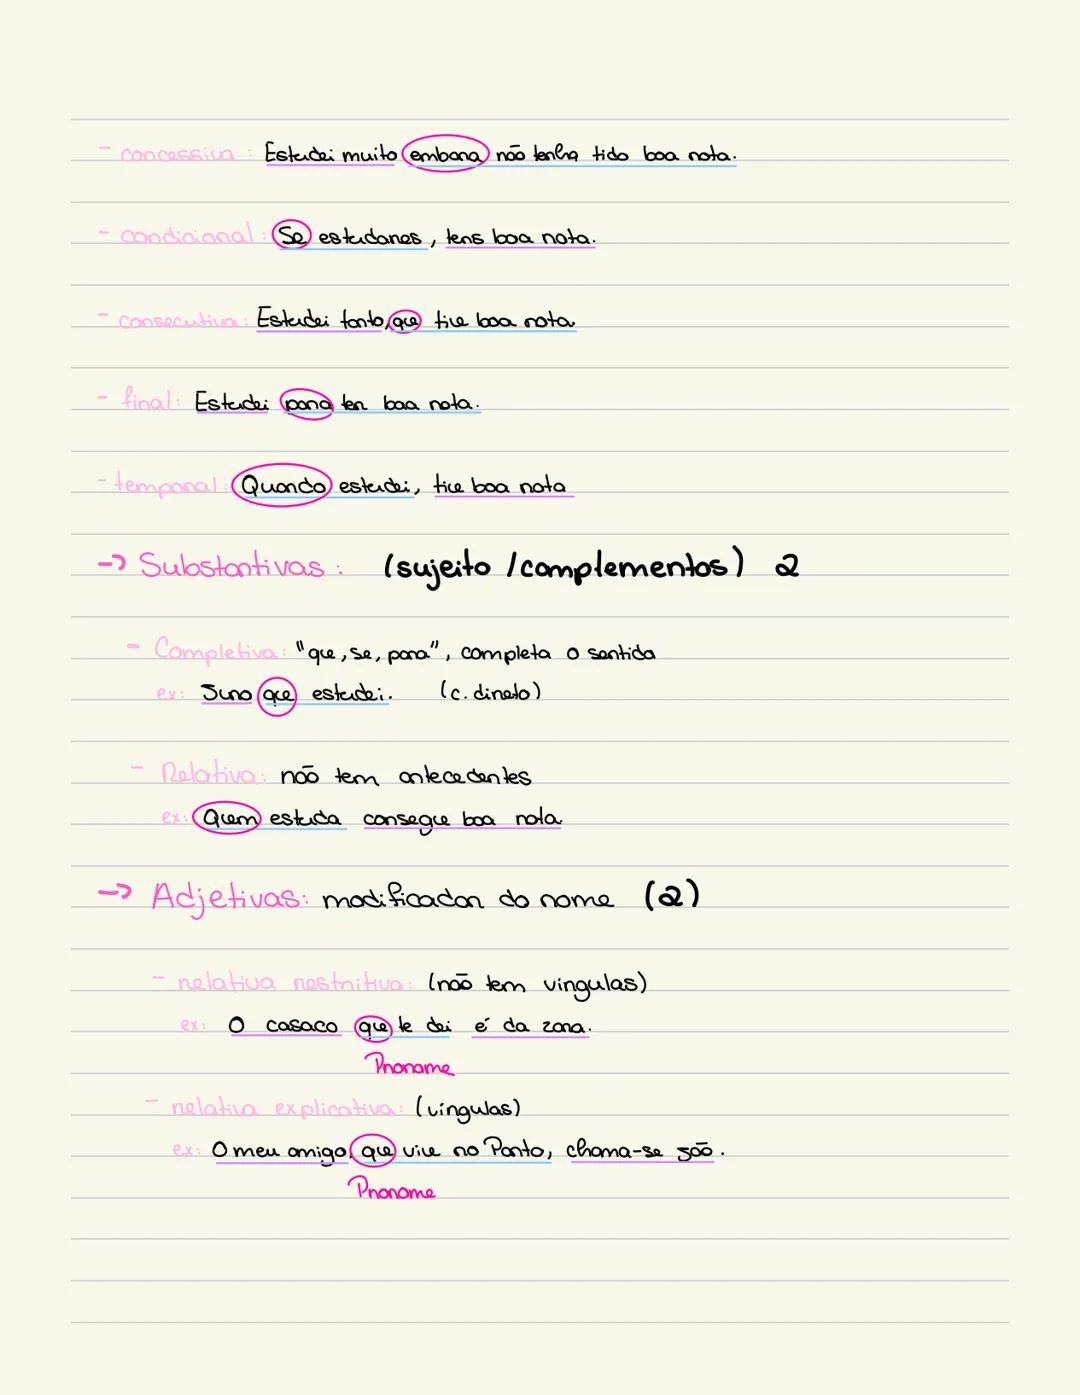 - concessiva : Estudei muito embora não tenha tido boa nota.
- condicional : Se estudares, tens boa nota.
- consecutiva : Estudei tanto, que tive boa nota.
- final : Estudei para ter boa nota.
- temporal : Quando estudei, tive boa nota
-> Substantivas : (sujeito / complementos) 2
- Completiva : "que, se, para", completa o sentido
ex: Juro que estudei. (c. direto)
- Relativa : não tem antecedentes
ex: Quem estuda consegue boa nota.
-> Adjetivas : modificador do nome (2)
- relativa restritiva : (não tem vírgulas)
ex: O casaco que te dei é da zara.
Pronome
- relativa explicativa : (vírgulas)
ex: O meu amigo, que vive no Porto, chama-se João.
Pronome